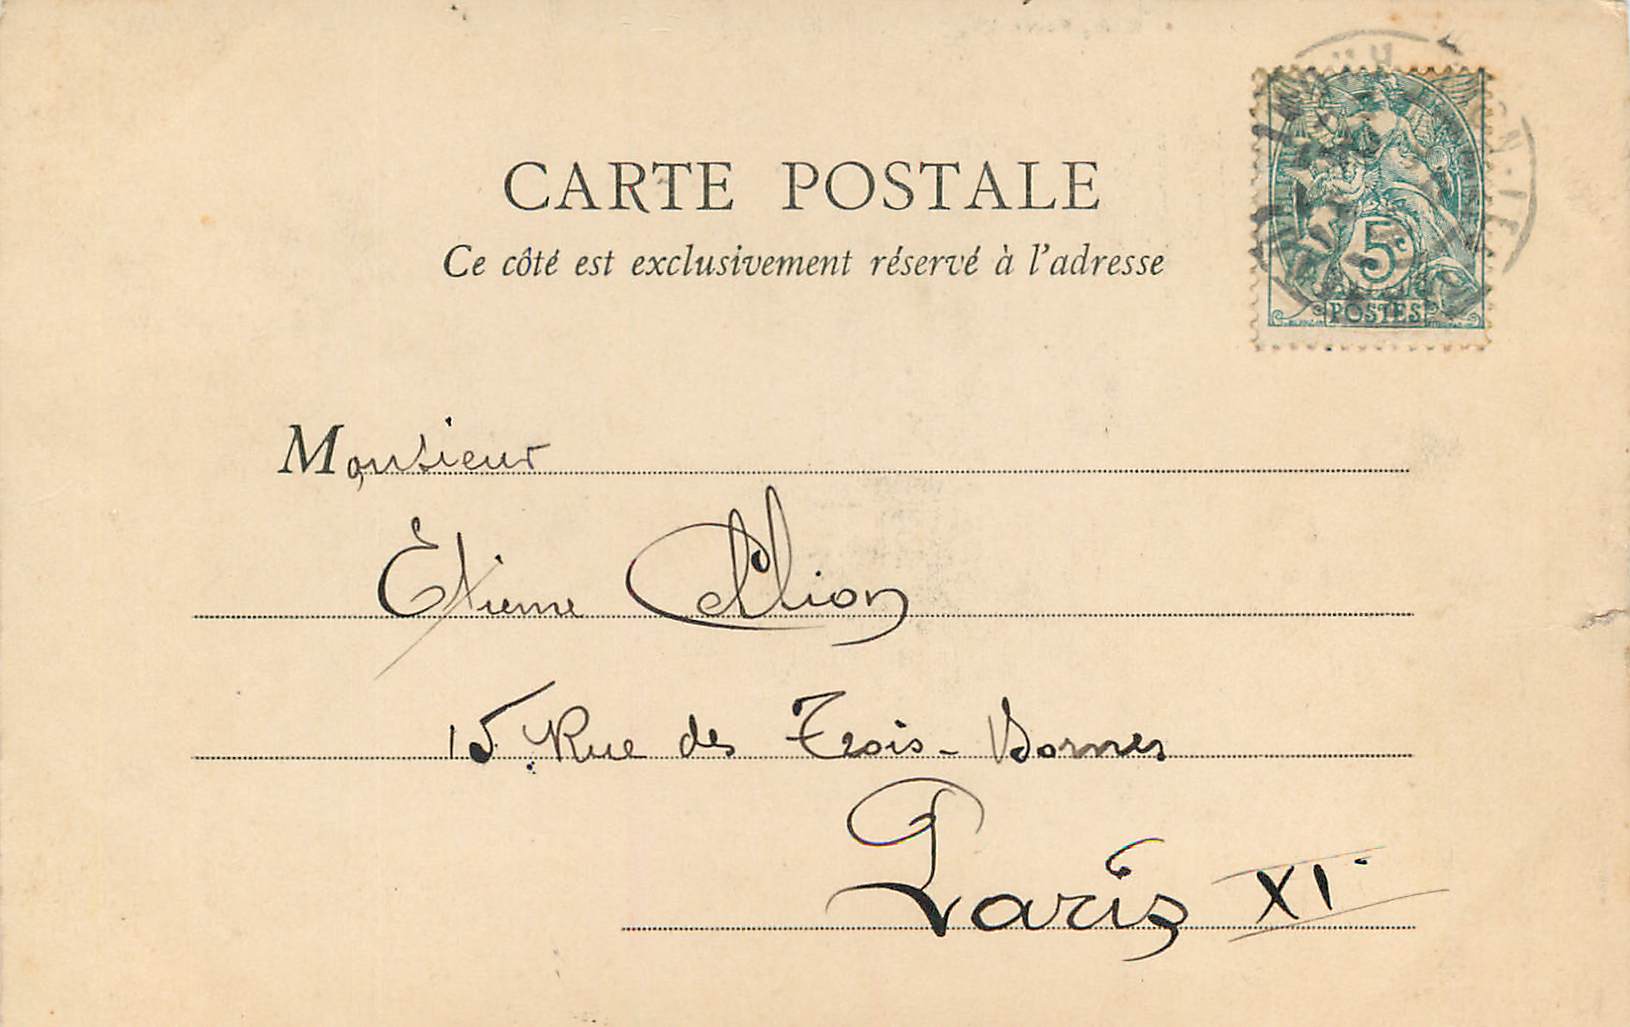 CARTE POSTALE
Ce côté est exclusivement réservé à l'adresse
5c
POSTES
Monsieur
Etienne
15 Rue des Trois-Bornes
Paris XI